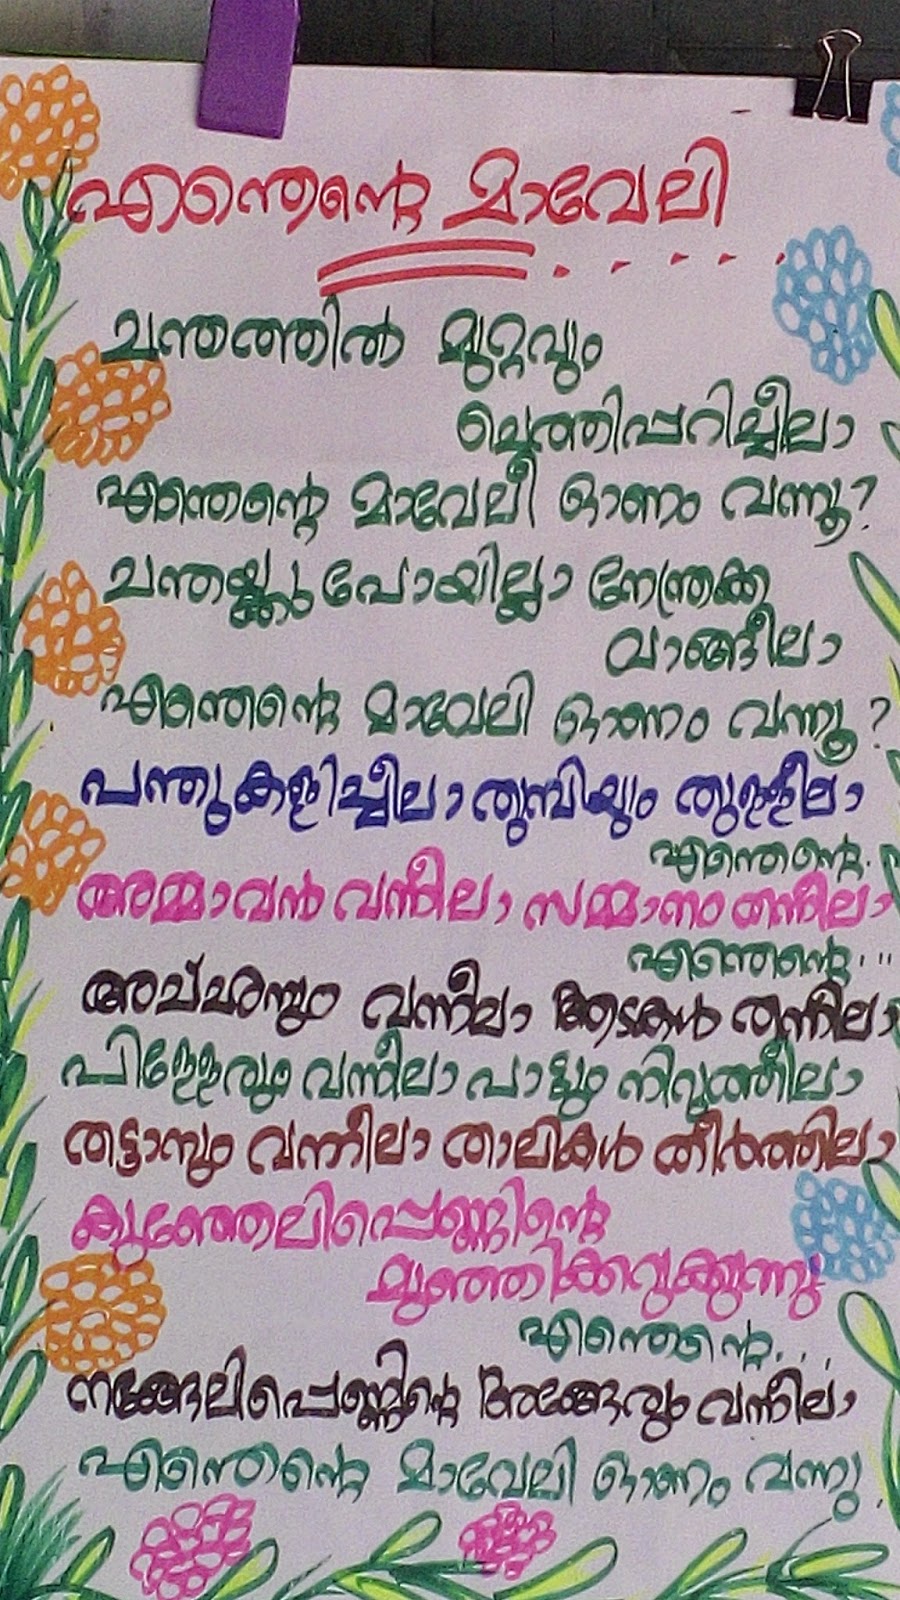 എന്തെന്റെ മാവേലി
ചന്തത്തിൽ മുറ്റവും
ചെത്തിപ്പറിച്ചീലാ
എന്തെന്റെ മാവേലീ ഓണം വന്നൂ?
ചന്തയ്ക്കു പോയില്ലാ നേന്ത്രക്ക
വാങ്ങീലാ
എന്തെന്റെ മാവേലി ഓണം വന്നൂ?
പന്തുകളിച്ചീലാ തുമ്പിയും തുള്ളീലാ
എന്തെന്റെ..
അമ്മാവൻ വന്നീലാ സമ്മാനം തന്നീലാ
എന്തെന്റെ...
അച്ഛനും വന്നീലാ ആടകൾ തന്നീലാ
പിള്ളേരും വന്നീലാ പാട്ടും നിറുത്തീലാ
തട്ടാനും വന്നീലാ താലികൾ തീർത്തീലാ
കുഞ്ഞേലിപ്പെണ്ണിന്റെ
മുഞ്ഞിക്കറുക്കുന്നു
എന്തെന്റെ....
നങ്ങേലിപ്പെണ്ണിന്റെ അങ്ങേരും വന്നീലാ
എന്തെന്റെ മാവേലി ഓണം വന്നു.